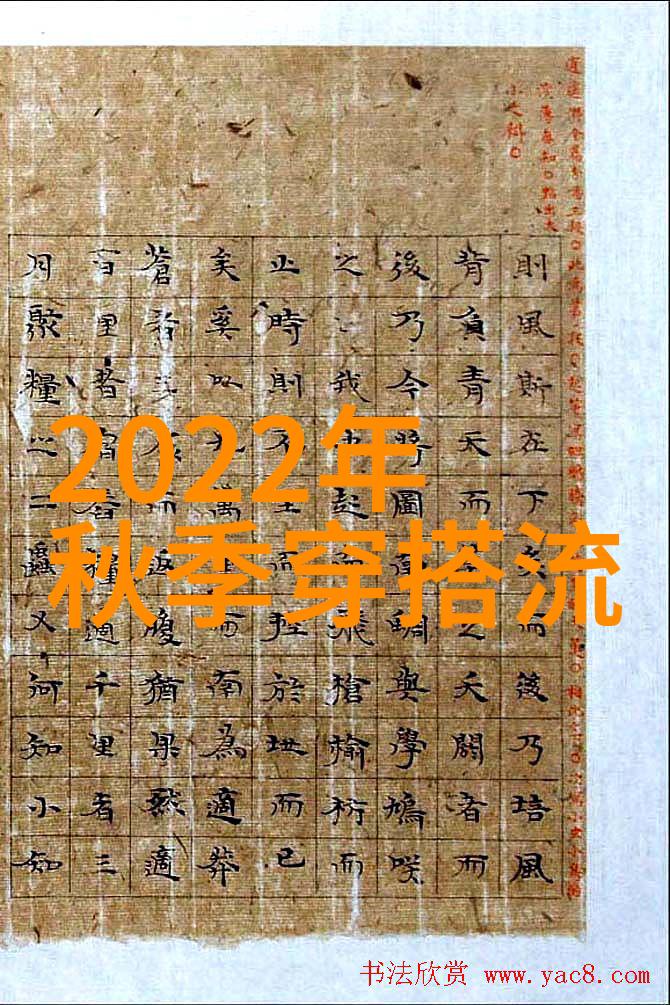 2022年
秋季穿搭流
小之辯。
則風斯在下矣而後乃培風
背負青天而莫之夭閼者而
後乃今將圖南蜩與學鳩咲
之我而飛槍榆枋而
止時則不至而控於地而已
矣奚以九萬里而南為適莽
蒼者三而返腹猶果然適
百里者宿舂糧適千里者三
月聚糧之二蟲又何知小知
书法欣赏 www.yac8.com